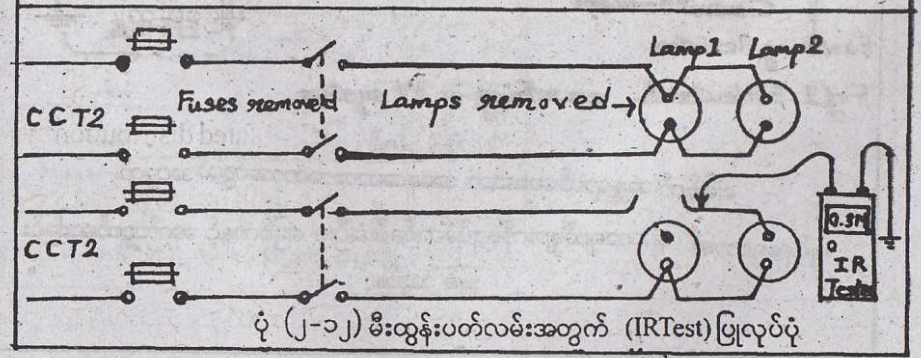 Lamp1 Lamp2
CCT2
Fuses removed
Lamps removed→
CCT2
0.3M
IR
Tester
ပုံ (၂-၁၂) မီးထွန်းပတ်လမ်းအတွက် (IRTest) ပြုလုပ်ပုံ